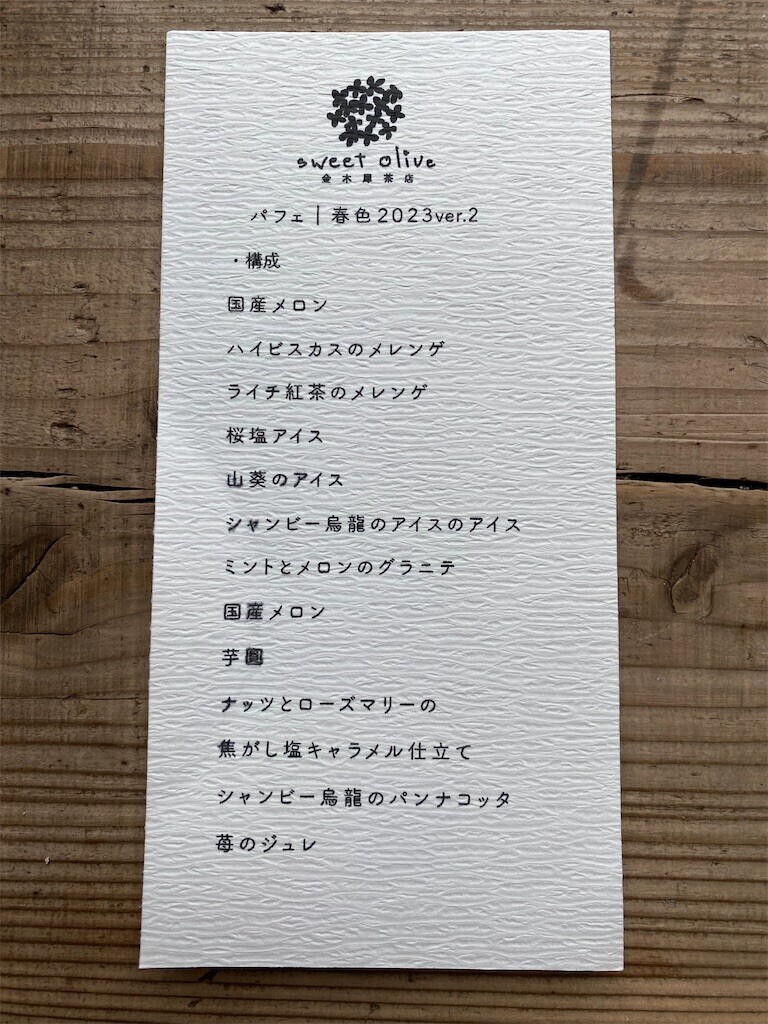 sweet olive
金木犀茶店
パフェ｜春色2023ver.2
・構成
国産メロン
ハイビスカスのメレンゲ
ライチ紅茶のメレンゲ
桜塩アイス
山葵のアイス
シャンビー烏龍のアイスのアイス
ミントとメロンのグラニテ
国産メロン
芋圓
ナッツとローズマリーの
焦がし塩キャラメル仕立て
シャンビー烏龍のパンナコッタ
苺のジュレ